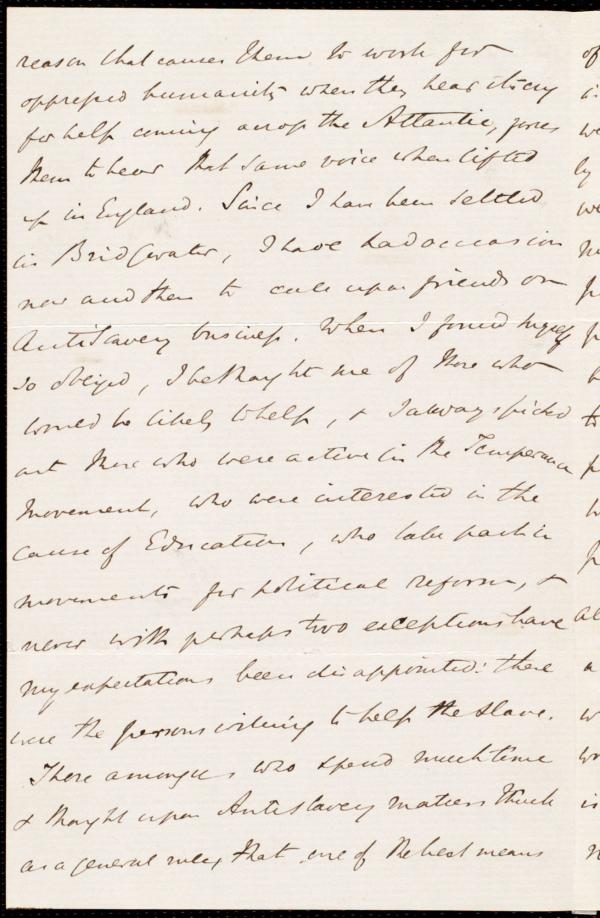 reason that causes them to work for
oppressed humanity when they hear its cry
for help coming across the Atlantic, forces
them to hear that same voice when lifted
up in England. Since I have been settled
in Bridgwater, I have had occasion
now and then to call upon friends on
AntiSlavery business. When I found myself
so obliged, I bethought me of those who
would be likely to help, & I always picked
out those who were active in the Temperance
Movement, who were interested in the
cause of Education, who take part in
movements for political reform, &
never with perhaps two exceptions have
my expectations been disappointed: these
were the persons willing to help the slave.
Those amongst us who spend much time
& thought upon Antislavery matters think
as a general rule, that one of the best means